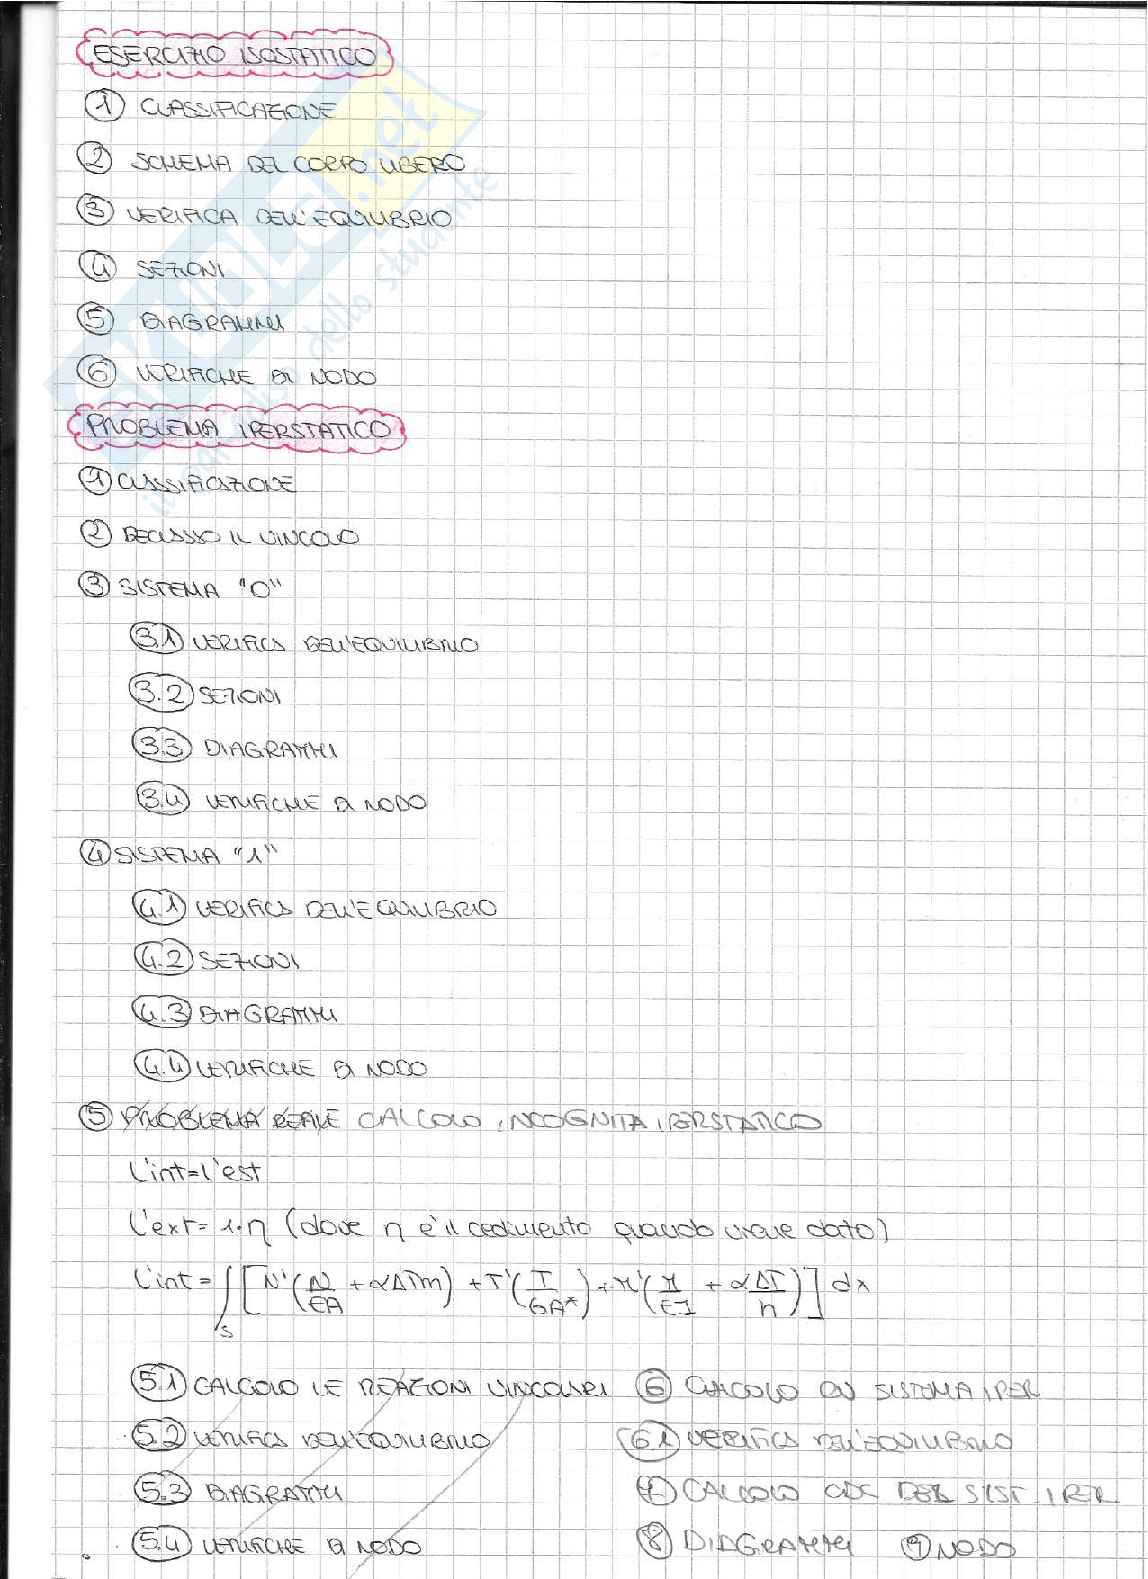 ESERCIZIO ISOSTATICO
① CLASSIFICAZIONE
② SCHEMA DEL CORPO LIBERO
③ VERIFICA DELL'EQUILIBRIO
④ SEZIONI
⑤ DIAGRAMMI
⑥ VERIFICHE DI NODO
PROBLEMA IPERSTATICO
① CLASSIFICAZIONE
② DECLASSO IL VINCOLO
③ SISTEMA "0"
3.1 VERIFICA DELL'EQUILIBRIO
3.2 SEZIONI
3.3 DIAGRAMMI
3.4 VERIFICHE DI NODO
④ SISTEMA "1"
4.1 VERIFICA DELL'EQUILIBRIO
4.2 SEZIONI
4.3 DIAGRAMMI
4.4 VERIFICHE DI NODO
⑤ PROBLEMA REALE CALCOLO INCOGNITA IPERSTATICO
L'int=L'est
L'ext= 1·η (dove η è il cedimento quando viene dato)
L'int = ∫s [N'(N/EA + αΔTm) + T'(T/GA*) + M'(M/EI + αΔT/h)] dx
5.1 CALCOLO LE REAZIONI VINCOLARI
5.2 VERIFICA DELL'EQUILIBRIO
5.3 DIAGRAMMI
5.4 VERIFICHE DI NODO
⑥ CALCOLO RV SISTEMA IPER
6.1 VERIFICA DELL'EQUILIBRIO
⑦ CALCOLO CDS DEL SIST IPER
⑧ DIAGRAMMI ⑨ NODO
SKUOLA.net
il paradiso dello studente